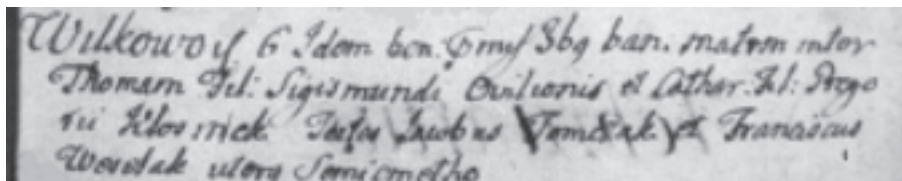 Wilkowoiſ 6 Idem ben. Pmiſ 3bq ban. matrm inter
Thomam Fil: Sigismundi Ovilionis et Cathar. Fil: Grego
rii Kłosn Testes Jacobus Tomczak et Franciscus
Wesolak uterq Semicmetho